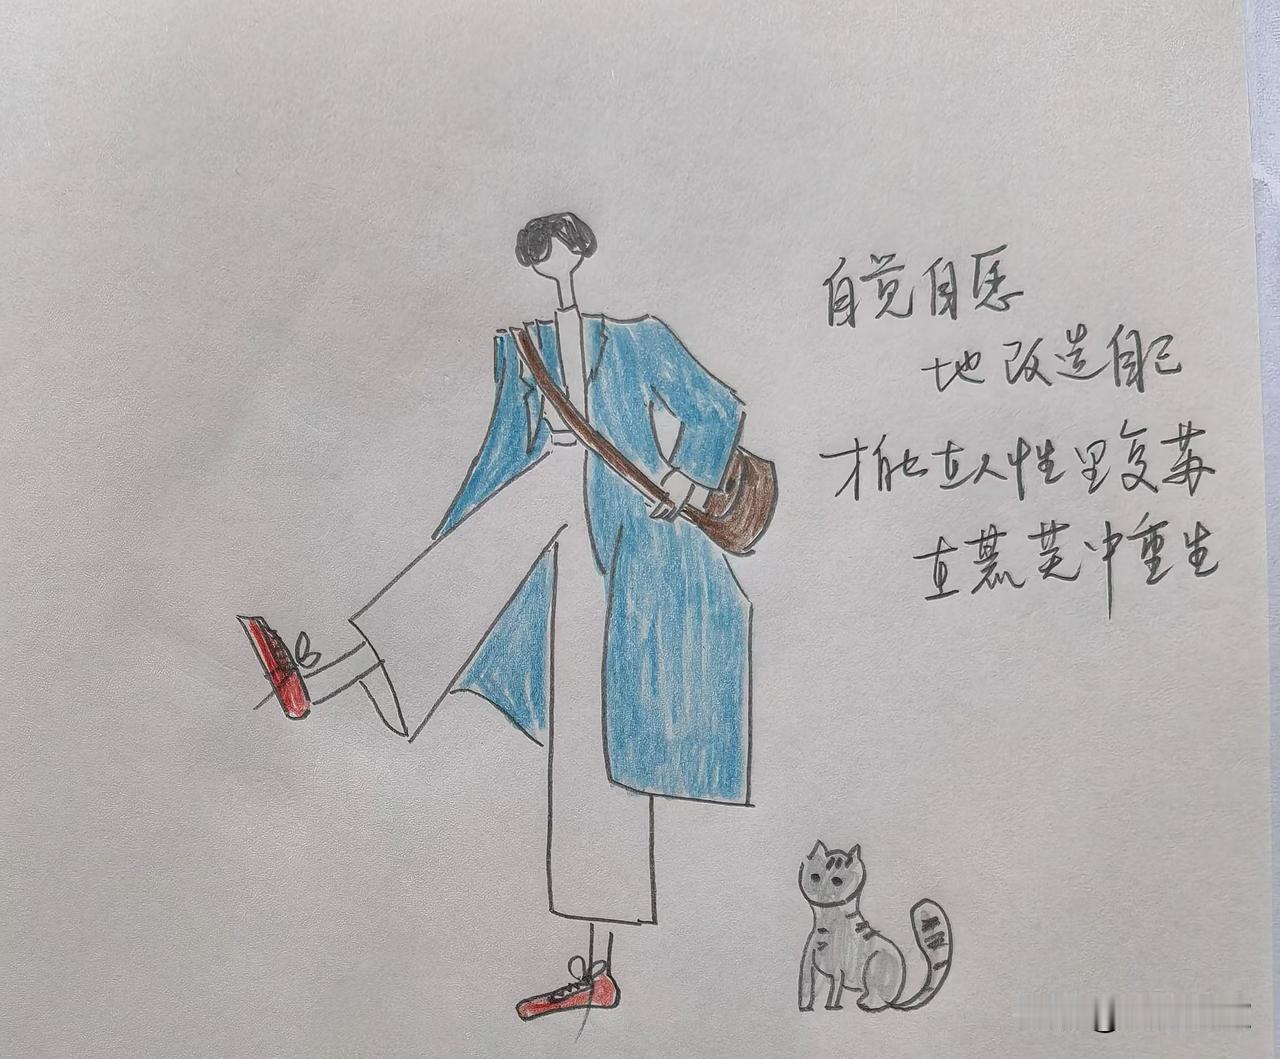 自觉自愿
地改造自己
才能在人性里复苏
在荒芜中重生